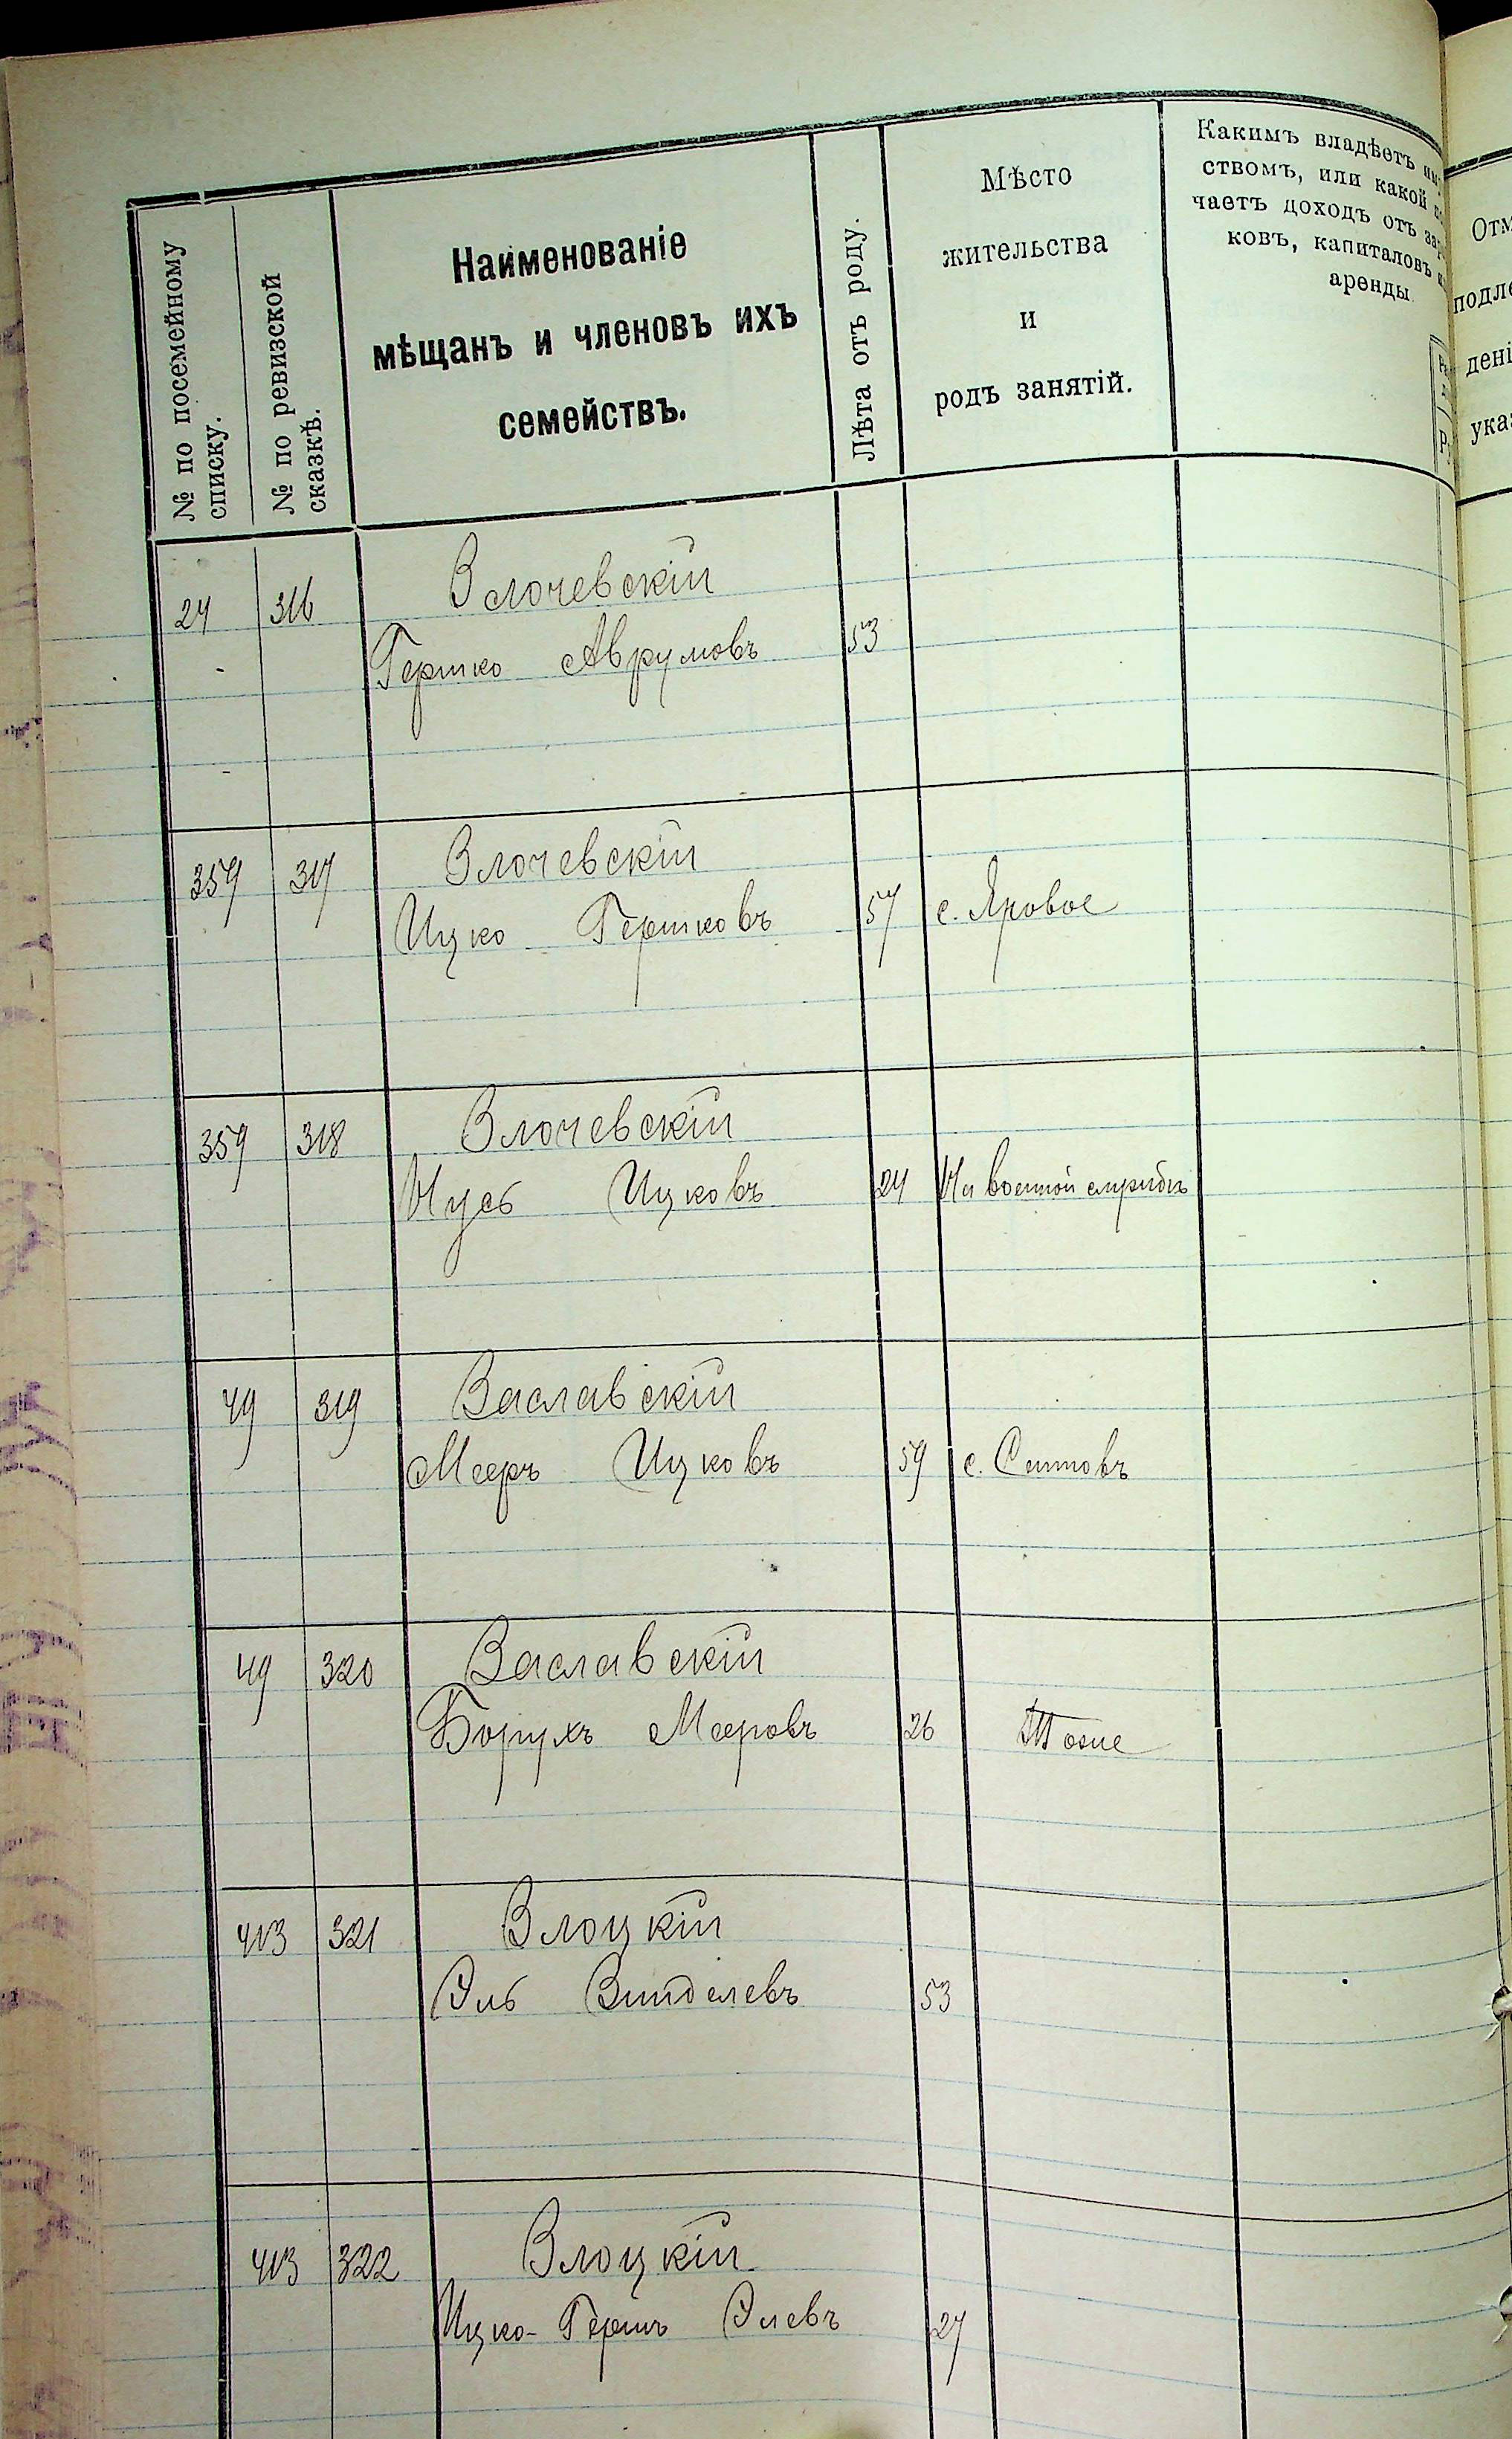 № по посемейному
списку.
№ по ревизской
сказкѣ.
Наименованіе
мѣщанъ и членовъ ихъ
семействъ.
Лѣта отъ роду.
Мѣсто
жительства
и
родъ занятій.
Какимъ владѣетъ
ствомъ, или какой
чаетъ доходъ отъ
ковъ, капиталовъ
аренды
24 316 Злочевскій
Гершко Аврумовъ 53
359 317 Злочевскій
Ицко Гершковъ 57 с. Яровое
359 318 Злочевскій
Нусь Ицковъ 24 На военной службѣ
49 319 Заславскій
Мееръ Ицковъ 59 с.
49 320 Заславскій
Борухъ Мееровъ 26 Тоже
413 321 Злоцкій
Эль Зинделевъ 53
413 322 Злоцкій
Ицко-Гершъ Элевъ 27